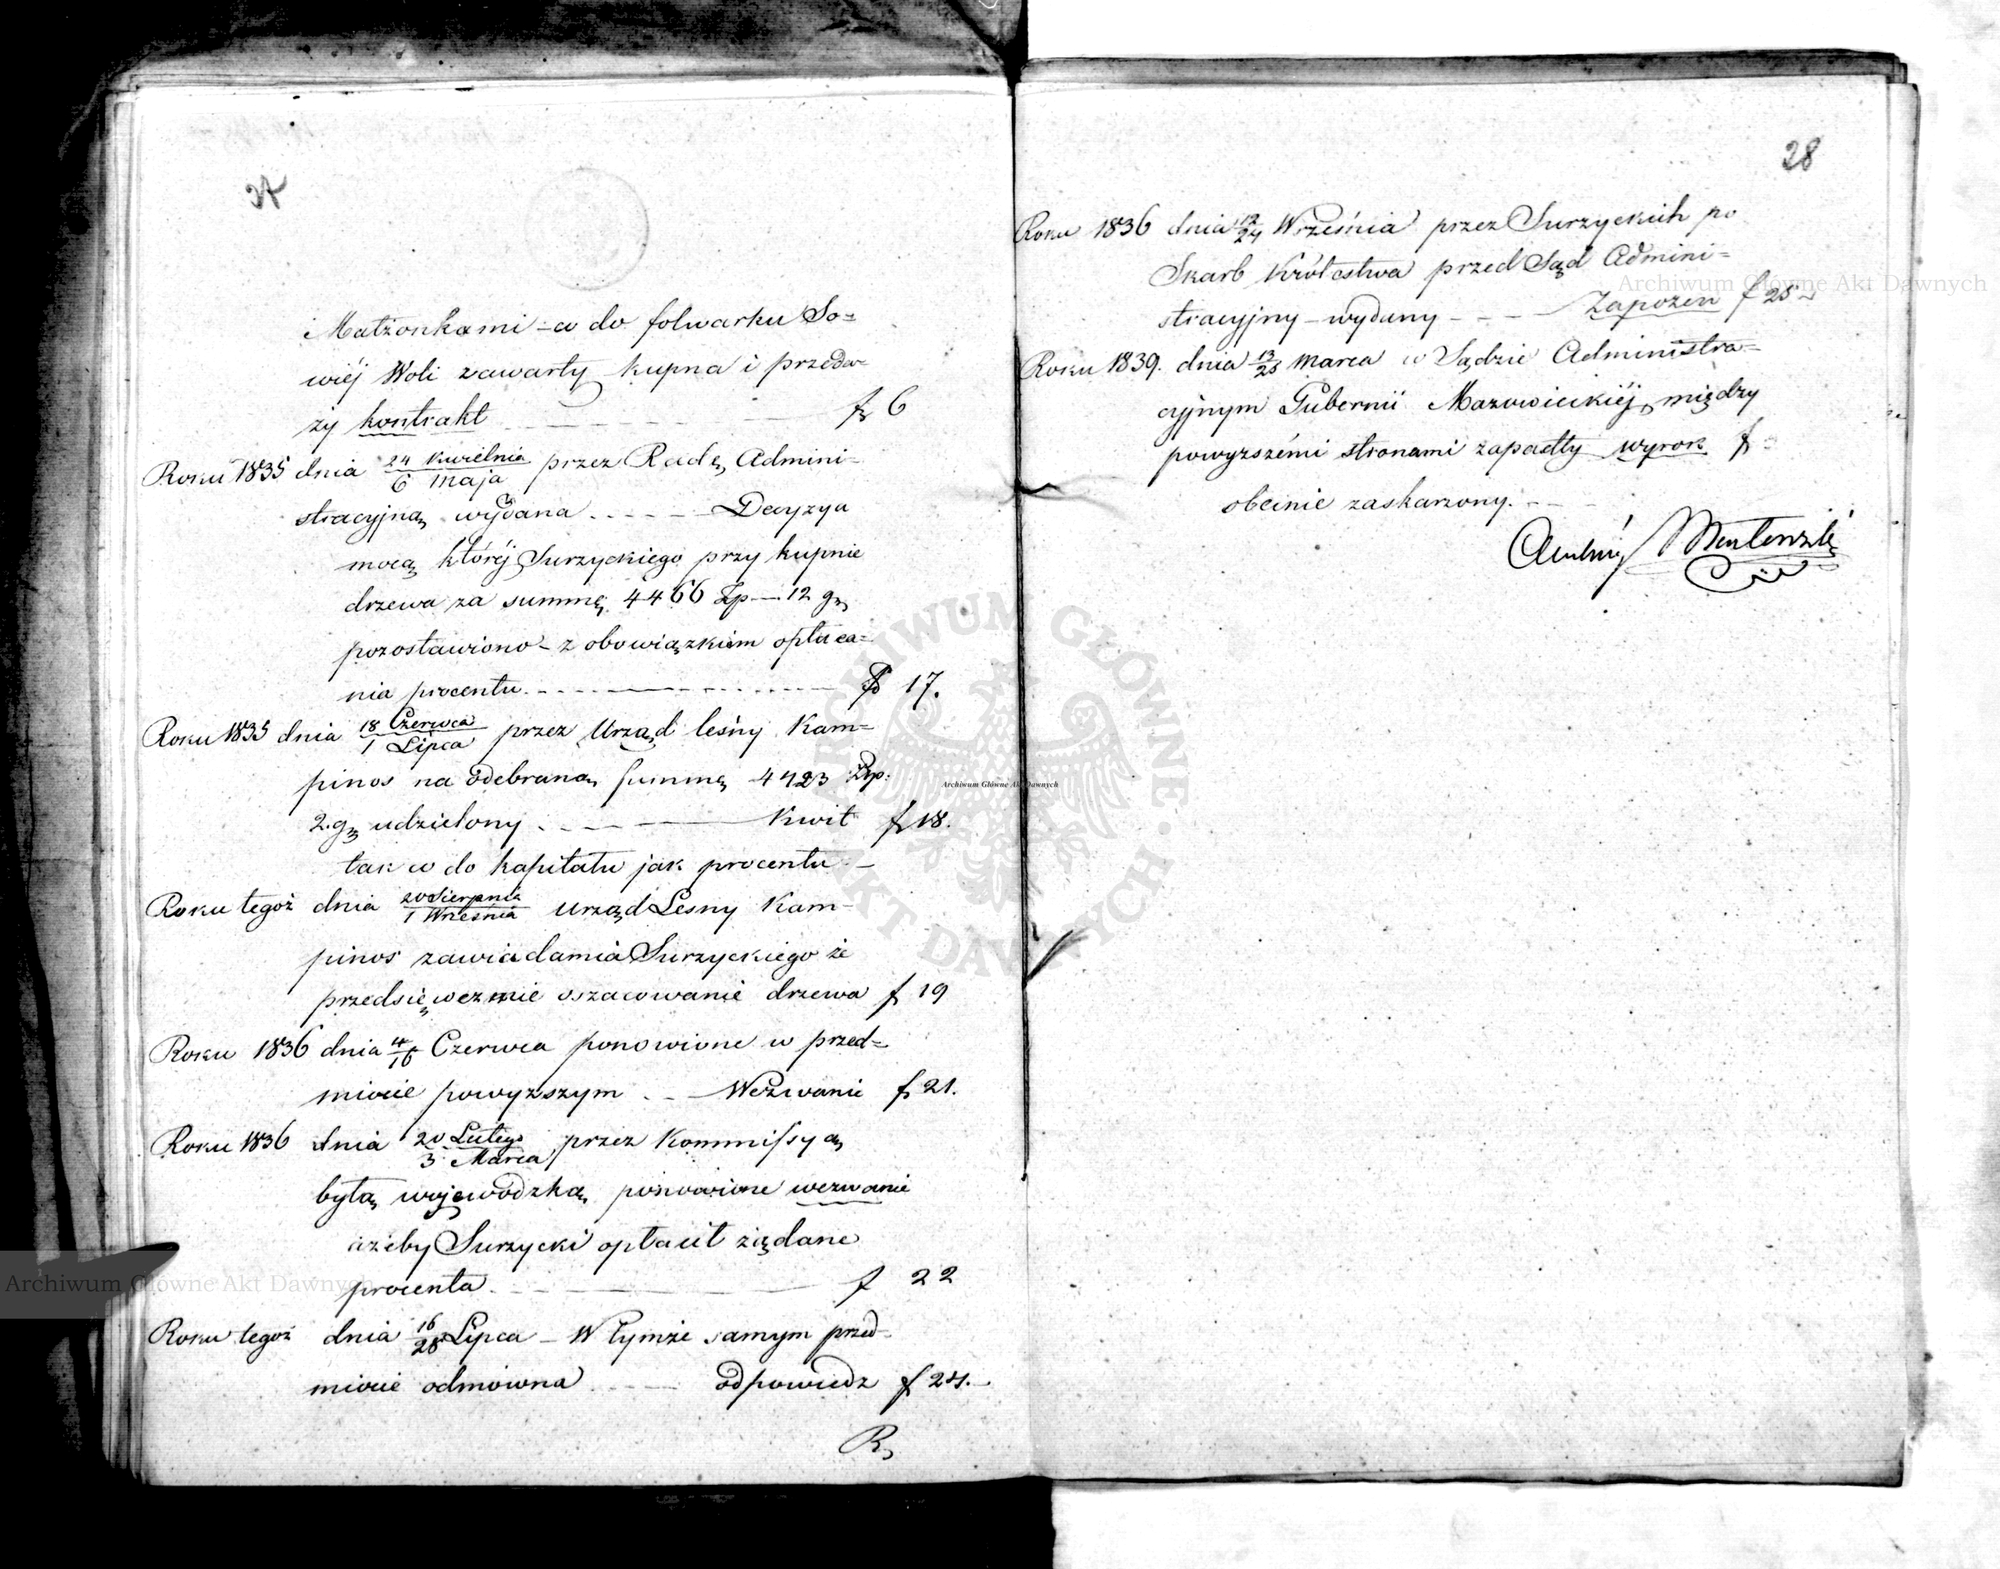 27
Małżonkami – co do folwarku So=
wiéj Woli zawarty kupna i przeda=
ży kontrakt f 6
Roku 1835 dnia 24 Kwietnia / 6 Maja przez Radę Admini=
stracyjną wydana Decyzya
mocą któréj Surzyckiego przy kupnie
drzewa za summę 4466 Zp – 12 gr
pozostawiono – z obowiązkiem opłaca=
nia procentu f 17.
Roku 1835 dnia 18 Czerwca / 1 Lipca przez Urząd leśny Kam=
pinos na odebraną summę 4423 Zp.
2. gr udzielony Kwit f 18.
tak co do kapitału jak procentu –
Roku tegoż dnia 20 Sierpnia / 1 Września Urząd Leśny Kam=
pinos zawiadamia Surzyckiego że
przedsięweźmie oszacowanie drzewa f 19
Roku 1836 dnia 4/16 Czerwca ponowione w przed=
miocie powyższym Wezwanie f 21.
Roku 1836 dnia 20 Lutego / 3 Marca przez Kommissyą
byłą wojewódzką ponowione wezwanie
ażeby Surzycki opłacił żądane
procenta f 22
Roku tegoż dnia 16/28 Lipca – W tymże samym przed=
miocie odmowna odpowiedz f 24.
R
28
Roku 1836 dnia 12/24 Września przez Surzyckich po
Skarb Królestwa przed Sąd Admini=
stracyjny – wydany Zapozew f 25
Roku 1839. dnia 13/25 Marca w Sądzie Administra=
cyjnym Gubernii Mazowieckiéj między
powyższémi stronami zapadły wyrok f
obecnie zaskarżony.
Archiwum Główne Akt Dawnych
Archiwum Główne Akt Dawnych
Archiwum Główne Akt Dawnych
ARCHIWUM GŁÓWNE AKT DAWNYCH